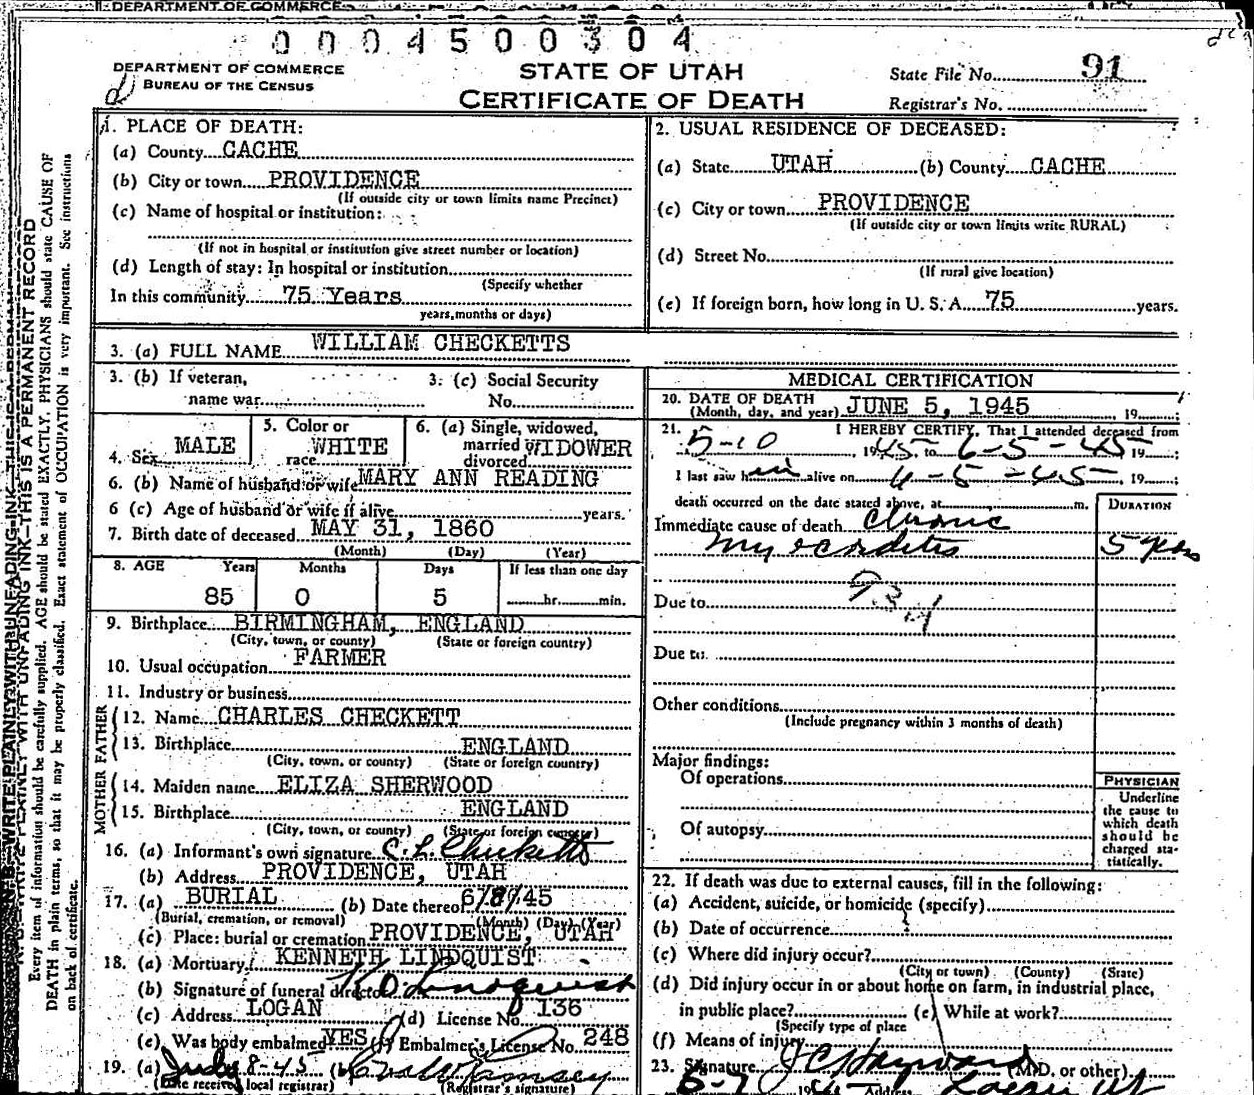 DEPARTMENT OF COMMERCE
0004500304
DEPARTMENT OF COMMERCE
BUREAU OF THE CENSUS
STATE OF UTAH
CERTIFICATE OF DEATH
State File No. 91
Registrar's No.
N. B.—WRITE PLAINLY WITH UNFADING INK—THIS IS A PERMANENT RECORD
Every item of information should be carefully supplied. AGE should be stated EXACTLY. PHYSICIANS should state CAUSE OF
DEATH in plain terms, so that it may be properly classified. Exact statement of OCCUPATION is very important. See instructions
on back of certificate.
1. PLACE OF DEATH:
(a) County CACHE
(b) City or town PROVIDENCE
(If outside city or town limits name Precinct)
(c) Name of hospital or institution:
(If not in hospital or institution give street number or location)
(d) Length of stay: In hospital or institution
(Specify whether
In this community 75 Years
years, months or days)
2. USUAL RESIDENCE OF DECEASED:
(a) State UTAH (b) County CACHE
(c) City or town PROVIDENCE
(If outside city or town limits write RURAL)
(d) Street No.
(If rural give location)
(e) If foreign born, how long in U. S. A. 75 years.
3. (a) FULL NAME WILLIAM CHECKETTS
3. (b) If veteran,
name war
3. (c) Social Security
No.
4. Sex MALE
5. Color or
race WHITE
6. (a) Single, widowed,
married WIDOWER
divorced
6. (b) Name of husband or wife MARY ANN READING
6 (c) Age of husband or wife if alive years.
7. Birth date of deceased MAY 31, 1860
(Month) (Day) (Year)
8. AGE Years Months Days If less than one day
85 0 5 hr. min.
9. Birthplace BIRMINGHAM, ENGLAND
(City, town, or county) (State or foreign country)
10. Usual occupation FARMER
11. Industry or business
FATHER
12. Name CHARLES CHECKETT
13. Birthplace ENGLAND
(City, town, or county) (State or foreign country)
MOTHER
14. Maiden name ELIZA SHERWOOD
15. Birthplace ENGLAND
(City, town, or county) (State or foreign country)
16. (a) Informant's own signature C. L. Checketts
(b) Address PROVIDENCE, UTAH
17. (a) BURIAL (b) Date thereof 6/8/45
(Burial, cremation, or removal) (Month) (Day) (Year)
(c) Place: burial or cremation PROVIDENCE, UTAH
18. (a) Mortuary KENNETH LINDQUIST
(b) Signature of funeral director K O Lindquist
(c) Address LOGAN (d) License No. 136
(e) Was body embalmed YES (f) Embalmer's License No. 248
19. (a) July 8-45 (b)
(Date received local registrar) (Registrar's signature)
MEDICAL CERTIFICATION
20. DATE OF DEATH
(Month, day, and year) JUNE 5, 1945, 19
21. I HEREBY CERTIFY, That I attended deceased from
5-10, 1945, to 6-5-45 19
I last saw him alive on 6-5-45, 19
death occurred on the date stated above, at m.
DURATION
Immediate cause of death chronic
myocarditis 5 yrs
93d
Due to
Due to
Other conditions
(Include pregnancy within 3 months of death)
Major findings:
Of operations
Of autopsy
PHYSICIAN
Underline
the cause to
which death
should be
charged sta-
tistically.
22. If death was due to external causes, fill in the following:
(a) Accident, suicide, or homicide (specify)
(b) Date of occurrence
(c) Where did injury occur?
(City or town) (County) (State)
(d) Did injury occur in or about home on farm, in industrial place,
in public place? (e) While at work?
(Specify type of place
(f) Means of injury
23. Signature J C Hayward (M.D. or other)
Address Logan Ut